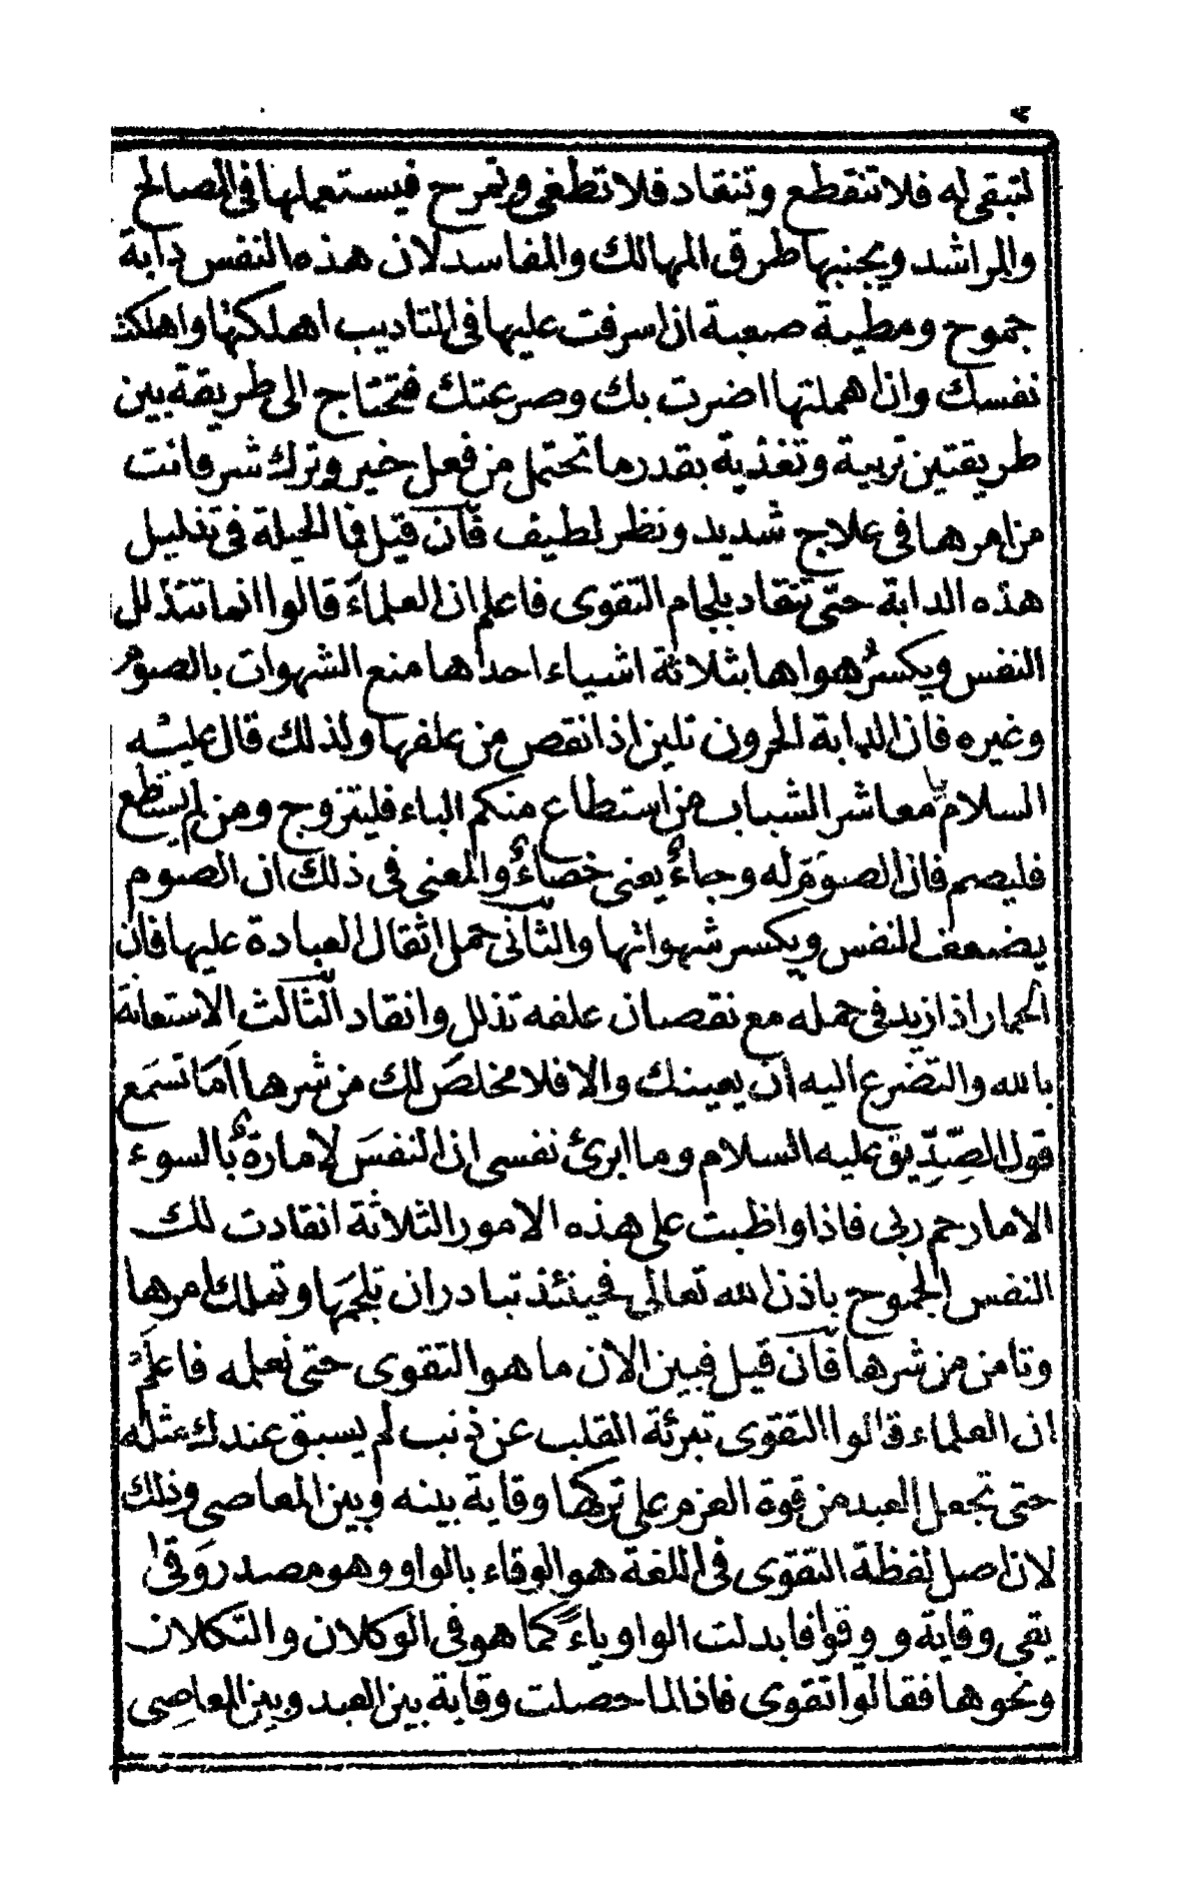 لتبقى له فلا تنقطع وتنقاد فلا تطغى وتمرح فيستعملها فى المصالح
والمراشد ويجنبها طرق المهالك والمفاسد لان هذه النفس دابة
جموح ومطية صعبة ان اسرفت عليها فى التاديب اهلكتها واهلكت
نفسك وان اهملتها اضرت بك وصرعتك فتحتاج الى طريقة بين
طريقتين تربية وتغذية بقدر ما تحتمل من فعل خير وترك شر فانت
من امرها فى علاج شديد ونظر لطيف فان قيل فما الحيلة فى تذليل
هذه الدابة حتّى تنقاد بلجام التقوى فاعلم ان العلماءَ قالوا انما تتذلل
النفس ويكسرُ هواها بثلاثة اشياء احداها منع الشهوات بالصوم
وغيره فان الدابة الحرون تلين اذا نقص من علفها ولذلك قال عليه
السلام يا معاشر الشباب من استطاع منكم الباء فليتزوج ومن لم يستطع
فليصم فان الصومَ له وجاءٌ يعنى خصاءٌ والمعنى فى ذلك ان الصوم
يضعف النفس ويكسر شهواتها والثانى حمل اثقال العبادة عليها فان
الحمار اذا زيد فى حمله مع نقصان علفه تذلل وانقاد الثالث الاستعانة
بالله والتضرع اليه ان يعينك والا فلا مخلصَ لك من شرها اَمَا تسمَع
قول الصِّدِّيق عليه السلام وما ابرئ نفسى ان النفسَ لامارةٌ بالسوء
الا ما رحم ربى فاذا واظبت على هذه الامور الثلاثة انقادت لك
النفس الجموح باذن الله تعالى فحينئذ تبادر ان تلجمَها وتملك امرها
وتامن من شرها فان قيل فبين الان ما هو التقوى حتى نعلمه فاعلَمْ
ان العلماء قالوا التقوى تبرئة القلب عن ذنب لم يسبق عندك مثله
حتى تجعل العبد من قوة العزم على تركها وقاية بينه وبين المعاصى وذلك
لان اصل لفظة التقوى فى اللغة هو الوقاء بالواو وهو مصدر وَقى
يقى وقاية و وقوا فابدلت الواو ياءً كما هو فى الوكلان والتكلان
ونحوها فقالوا تقوى فاذا لما حصلت وقاية بين العبد وبين المعاصِى